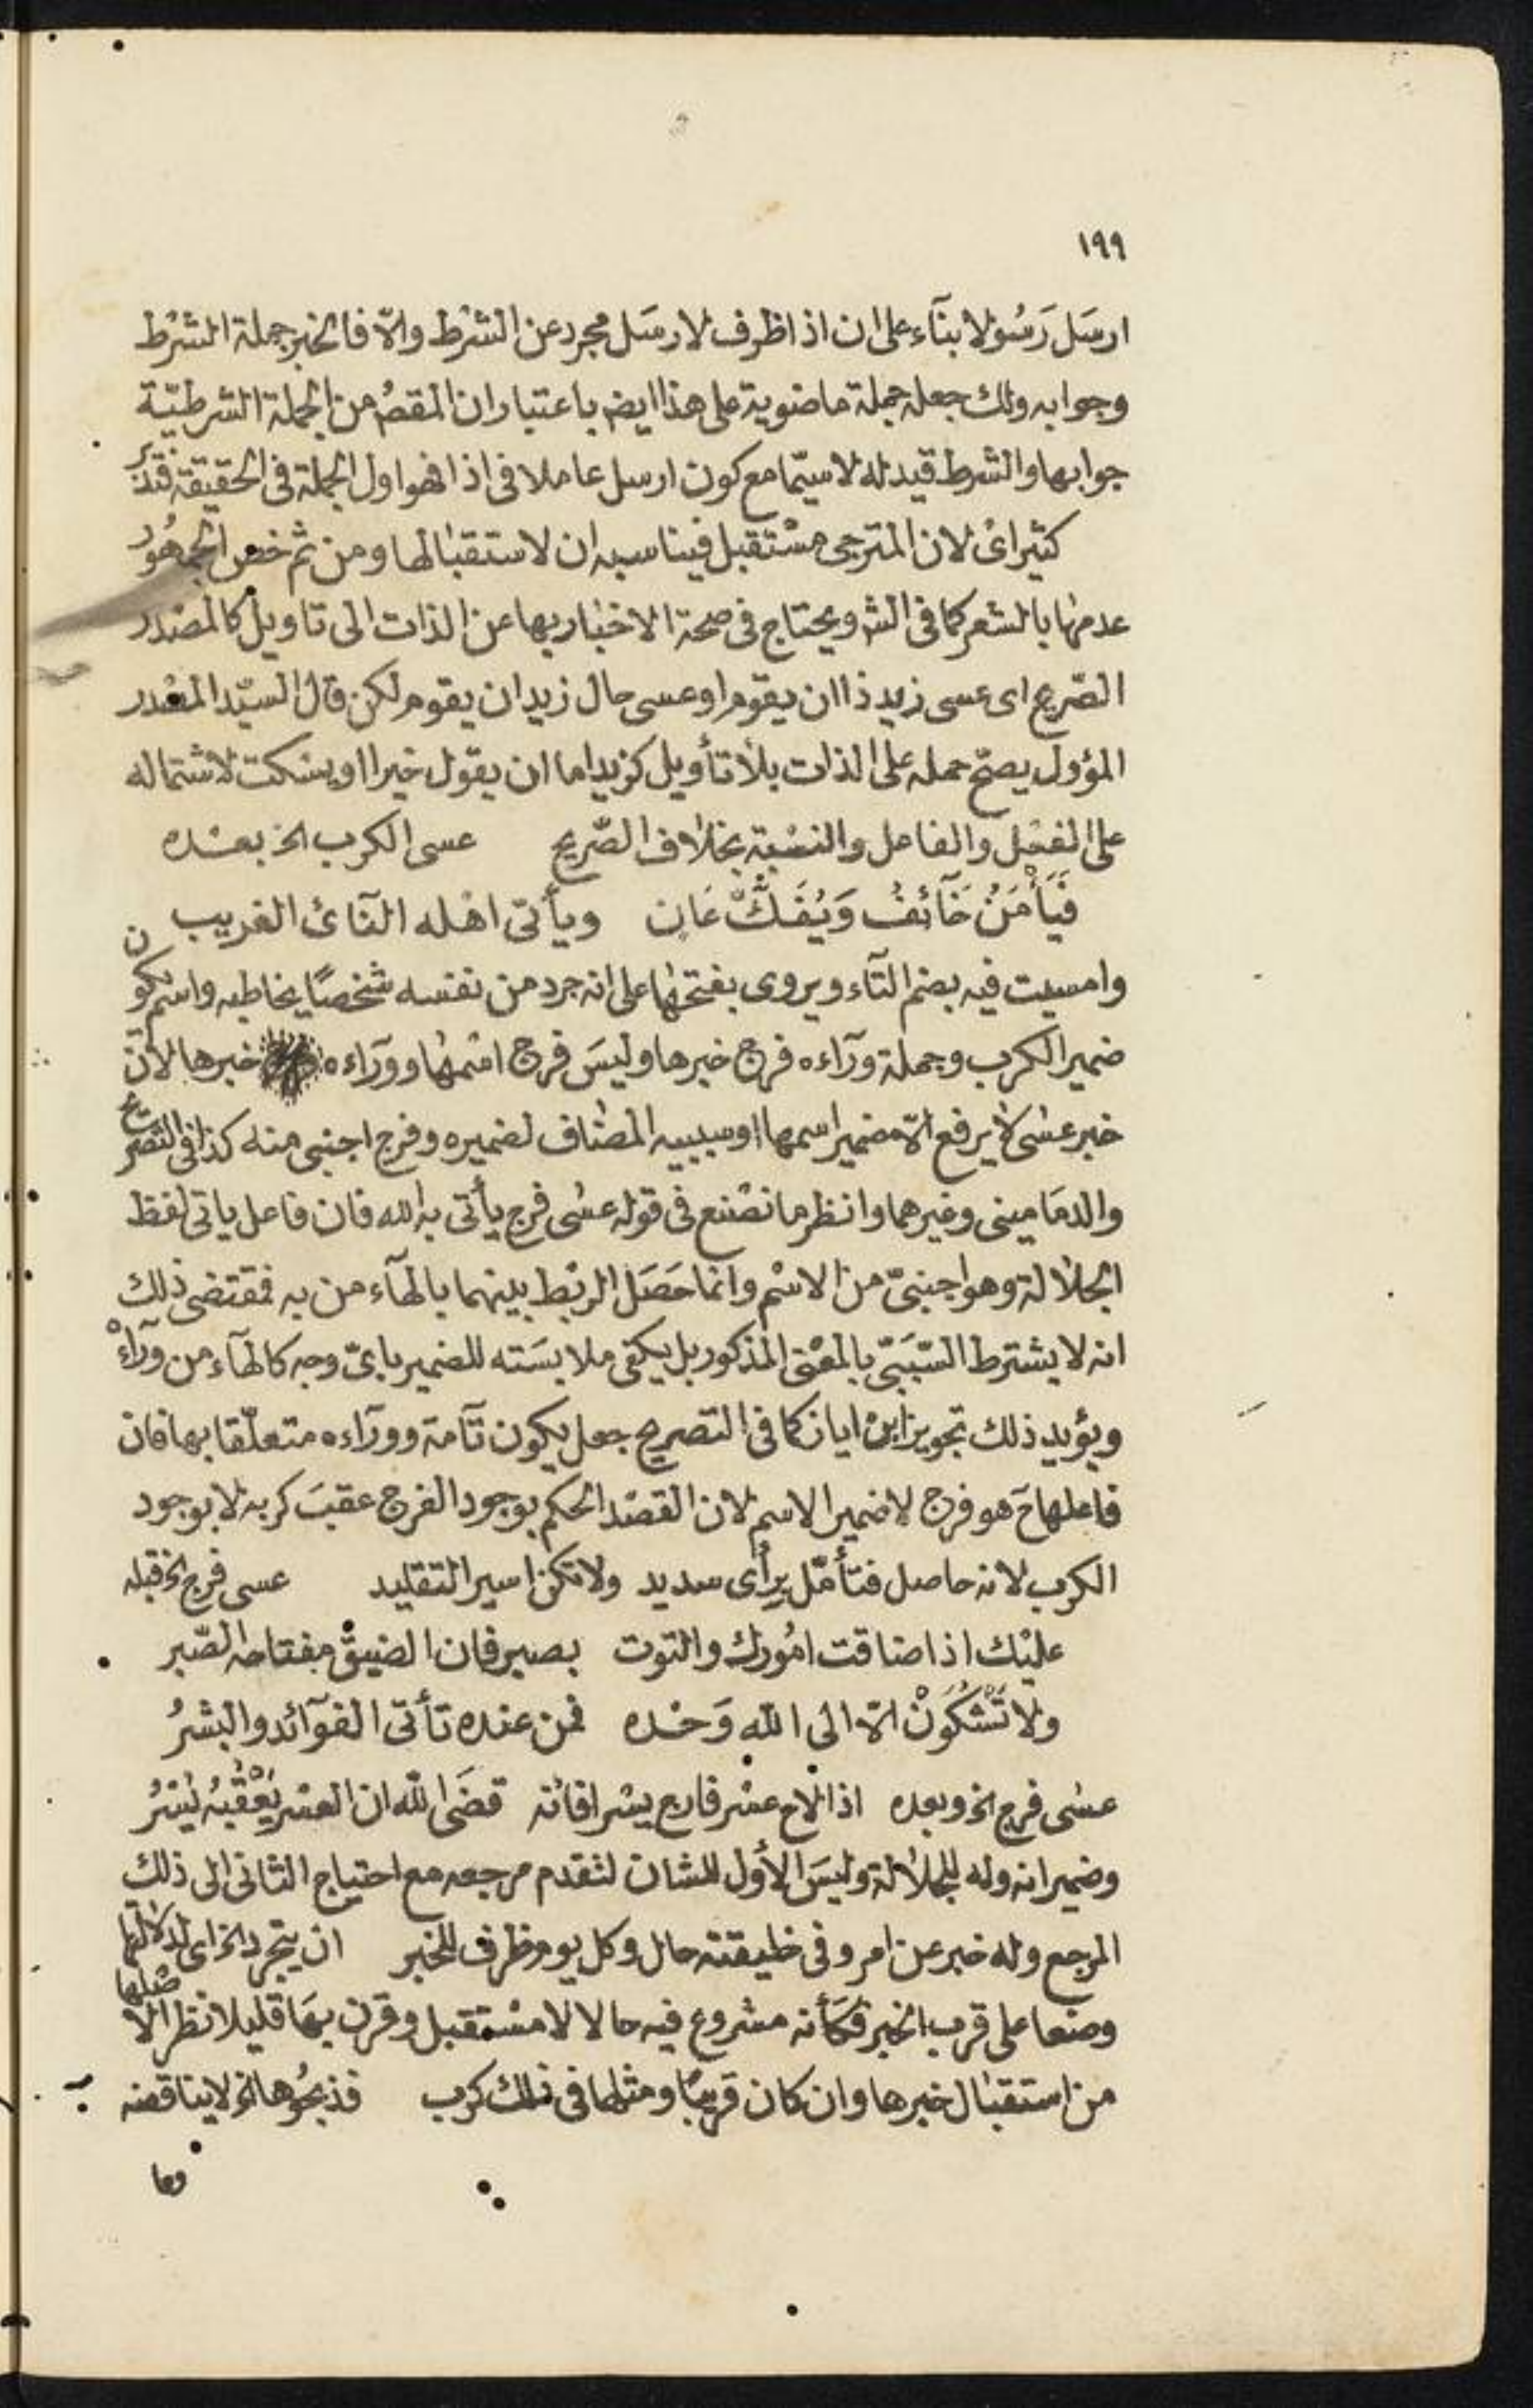 ١٩٩
ارسَل رَسُولا بنآء على ان اذا ظرف لارسَل مجرد عن الشرط والّا فالخبر جملة الشرْط
وجوابه ولك جعله جملة ماضوية على هذا ايضه باعتبار ان المقصُ من الجملة الشرطيّة
جوابها والشرط قيد له لا سيّما مع كون ارسل عاملا فى اذا فهو اول الجملة فى الحقيقة فتدبر
كثيرا اىْ لان المترجى مسْتقبل فيناسبه ان لاستقبالها ومن ثم خص الجمهُور
عدمها بالشعر كما فى الشه ويحتاج فى صحة الاخبار بها عن الذات الى تاويل كالمصْدر
الصّريح اى عسى زيد ذا ان يقوم او عسى حال زيد ان يقوم لكن قال السيّد المصْدر
المؤول يصحّ حمله على الذات بلا تأويل كزيد اما ان يقول خيرا او يسْكت لاشتماله
على الفعْل والفاعل والنسْبة بخلاف الصّريح عسى الكرب الخ بعْده
فَيَأْمَنُ خَآئفُ وَيُفَكُّ عَانٍ ويأتى اهْله النآئ الغريب
وامسيت فيه بضم التآء ويروى بفتحها على انه جرد من نفسه شخصًا يخاطبه واسم يكون
ضمير الكرب وجملة ورآءه فرج خبرها وليسَ فرج اسْمها وورآءه خبرها لانّ
خبر عسٰى لا يرفع الّا ضمير اسمها او سببيه المضاف لضميره وفرج اجنبى منه كذا فى التصريح
والدمَامينى وغيرهما وانظر ما نصْنع فى قوله عسٰى فرج يأتى به الله فان فاعل ياتى لفظ
الجلالة وهو اجنبىّ من الاسْم وانما حَصَل الربْط بينهما بالهآء من به فمقتضى ذلك
انه لا يشترط السّبَبىّ بالمعْنى المذكور بل يكفى ملابسَته للضمير باىّ وجه كالهآء من ورآءهْ
ويؤيد ذلك تجويز ابنْ اياز كما فى التصريح جعل يكون تآمة وورآءه متعلّقا بها فان
فاعلها حَ هو فرج لا ضمير الاسم لان القصْد الحكم بوجود الفرج عقبَ كربه لا بوجود
الكرب لانه حاصل فتأمّل برأى سديد ولا تكن اسير التقليد عسى فرج الخ قبله
عليْك اذا ضاقت امُورك والتوت بصبر فان الضيق مفتاحه الصّبر
ولا تَشْكُوَنْ الّا الى اللّه وَحْده فمن عنده تأتى الفوآئد والبشرُ
عسٰى فرج الخ وبعده اذا لاح عسْر فارج يسْرا فانه قضَى اللّه ان العسْر يَعْقُبُهُ يُسْرُ
وضمير انه وله للجلالة وليسَ الأول للشان لتقدم مرجعه مع احتياج الثانى الى ذلك
المرجع وله خبر عن امر وفى خليقته حال وكل يوم ظرف للخبر ان يتجرد الخ اى لدلالتها
وضعا على قرب الخبر فكأنه مشروع فيه حالا لا مسْتقبل وقرن بهَا قليلا نظر الاصْلها
من استقبال خبرها وان كان قريبًا ومثلها فى ذلك كرب فذبحُوها الخ لا يناقضه
وما